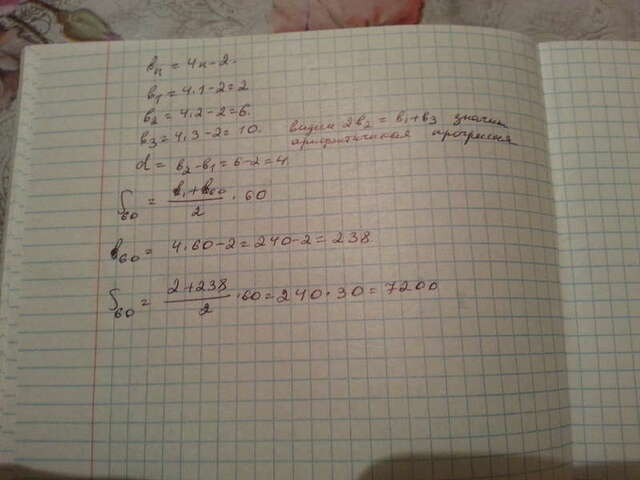 bₙ = 4n-2.
b₁ = 4·1-2=2
b₂ = 4·2-2=6.
b₃ = 4·3-2=10. видим 2b₂ = b₁+b₃ значит
арифметичкая прогрессия
d = b₂-b₁=6-2=4
S₆₀ = (b₁+b₆₀)/2 · 60
b₆₀ = 4·60-2=240-2=238
S₆₀ = (2+238)/2 ·60=240·30=7200